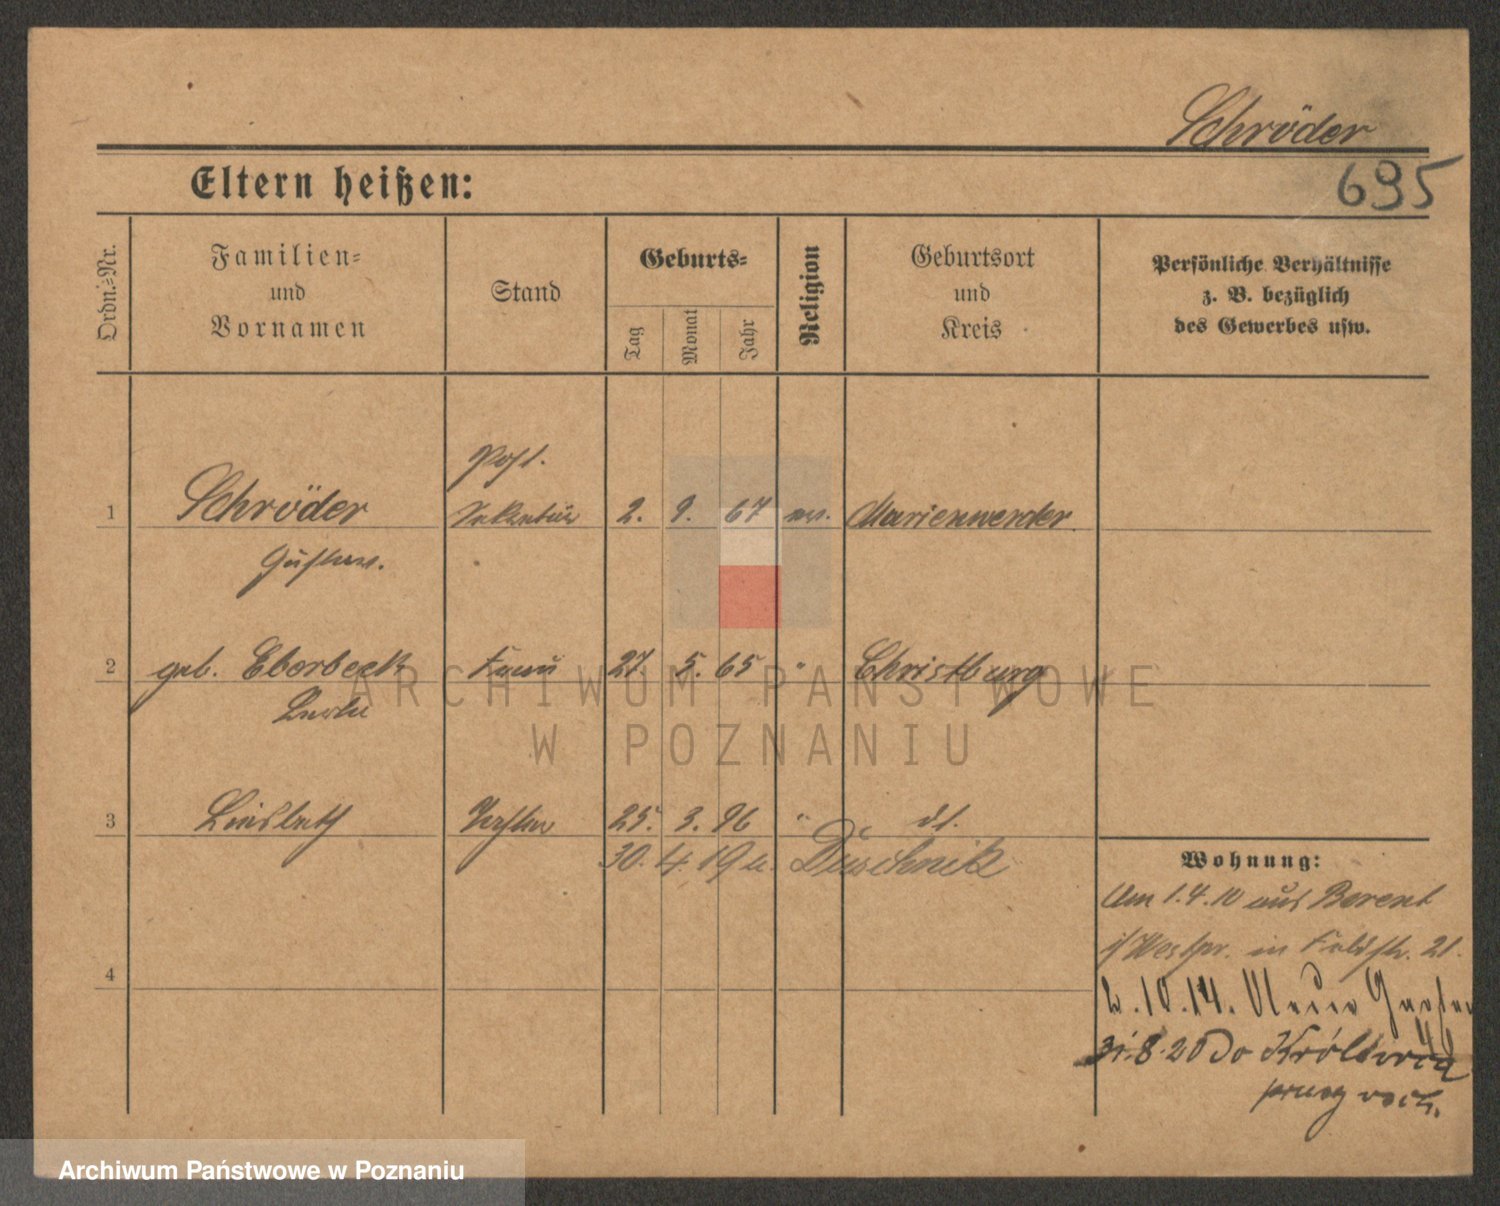 Schröder
695
Eltern heißen:
Ordn.-Nr.
Familien-
und
Vornamen
Stand
Geburts-
Tag
Monat
Jahr
Religion
Geburtsort
und
Kreis
Persönliche Verhältnisse
z. B. bezüglich
des Gewerbes usw.
Post.
1 Schröder Sekretär 2. 9. 67 ev. Marienwerder.
Gustav.
2 geb. Eberbeck Frau 27. 5. 65 " Christburg
3 Liesbeth Tochter 25. 3. 96 " dt.
30. 4. 19 u. Duschnik
4
Wohnung:
Am 1.4.10 aus Berent
i/Westpr. in Feldstr. 21.
2.10.14. Neue
31.8.20 do
ARCHIWUM PAŃSTWOWE
W POZNANIU
Archiwum Państwowe w Poznaniu